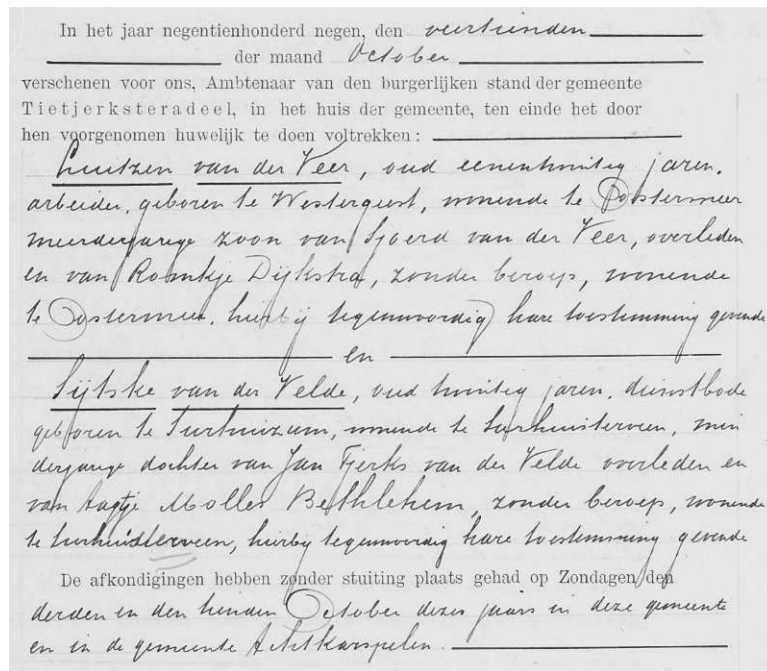 In het jaar negentienhonderd negen, den veertienden
der maand October
verschenen voor ons, Ambtenaar van den burgerlijken stand der gemeente
Tietjerksteradeel, in het huis der gemeente, ten einde het door
hen voorgenomen huwelijk te doen voltrekken:
Luitzen van der Veer, oud eenentwintig jaren,
arbeider, geboren te Westergeest, wonende te Oostermeer
meerderjarige zoon van Sjoerd van der Veer, overleden
en van Romkje Dijkstra, zonder beroep, wonende
te Oostermeer, hierbij tegenwoordig hare toestemming gevende
en
Sijtske van der Velde, oud twintig jaren, dienstbode
geboren te Surhuizum, wonende te Surhuisterveen, min
derjarige dochter van Jan Tjerks van der Velde overleden en
van Aagtje Molles Bethlehem, zonder beroep, wonende
te Surhuisterveen, hierbij tegenwoordig hare toestemming gevende
De afkondigingen hebben zonder stuiting plaats gehad op Zondagen den
derden en den tienden October dezes jaars in deze gemeente
en in de gemeente Achtkarspelen.